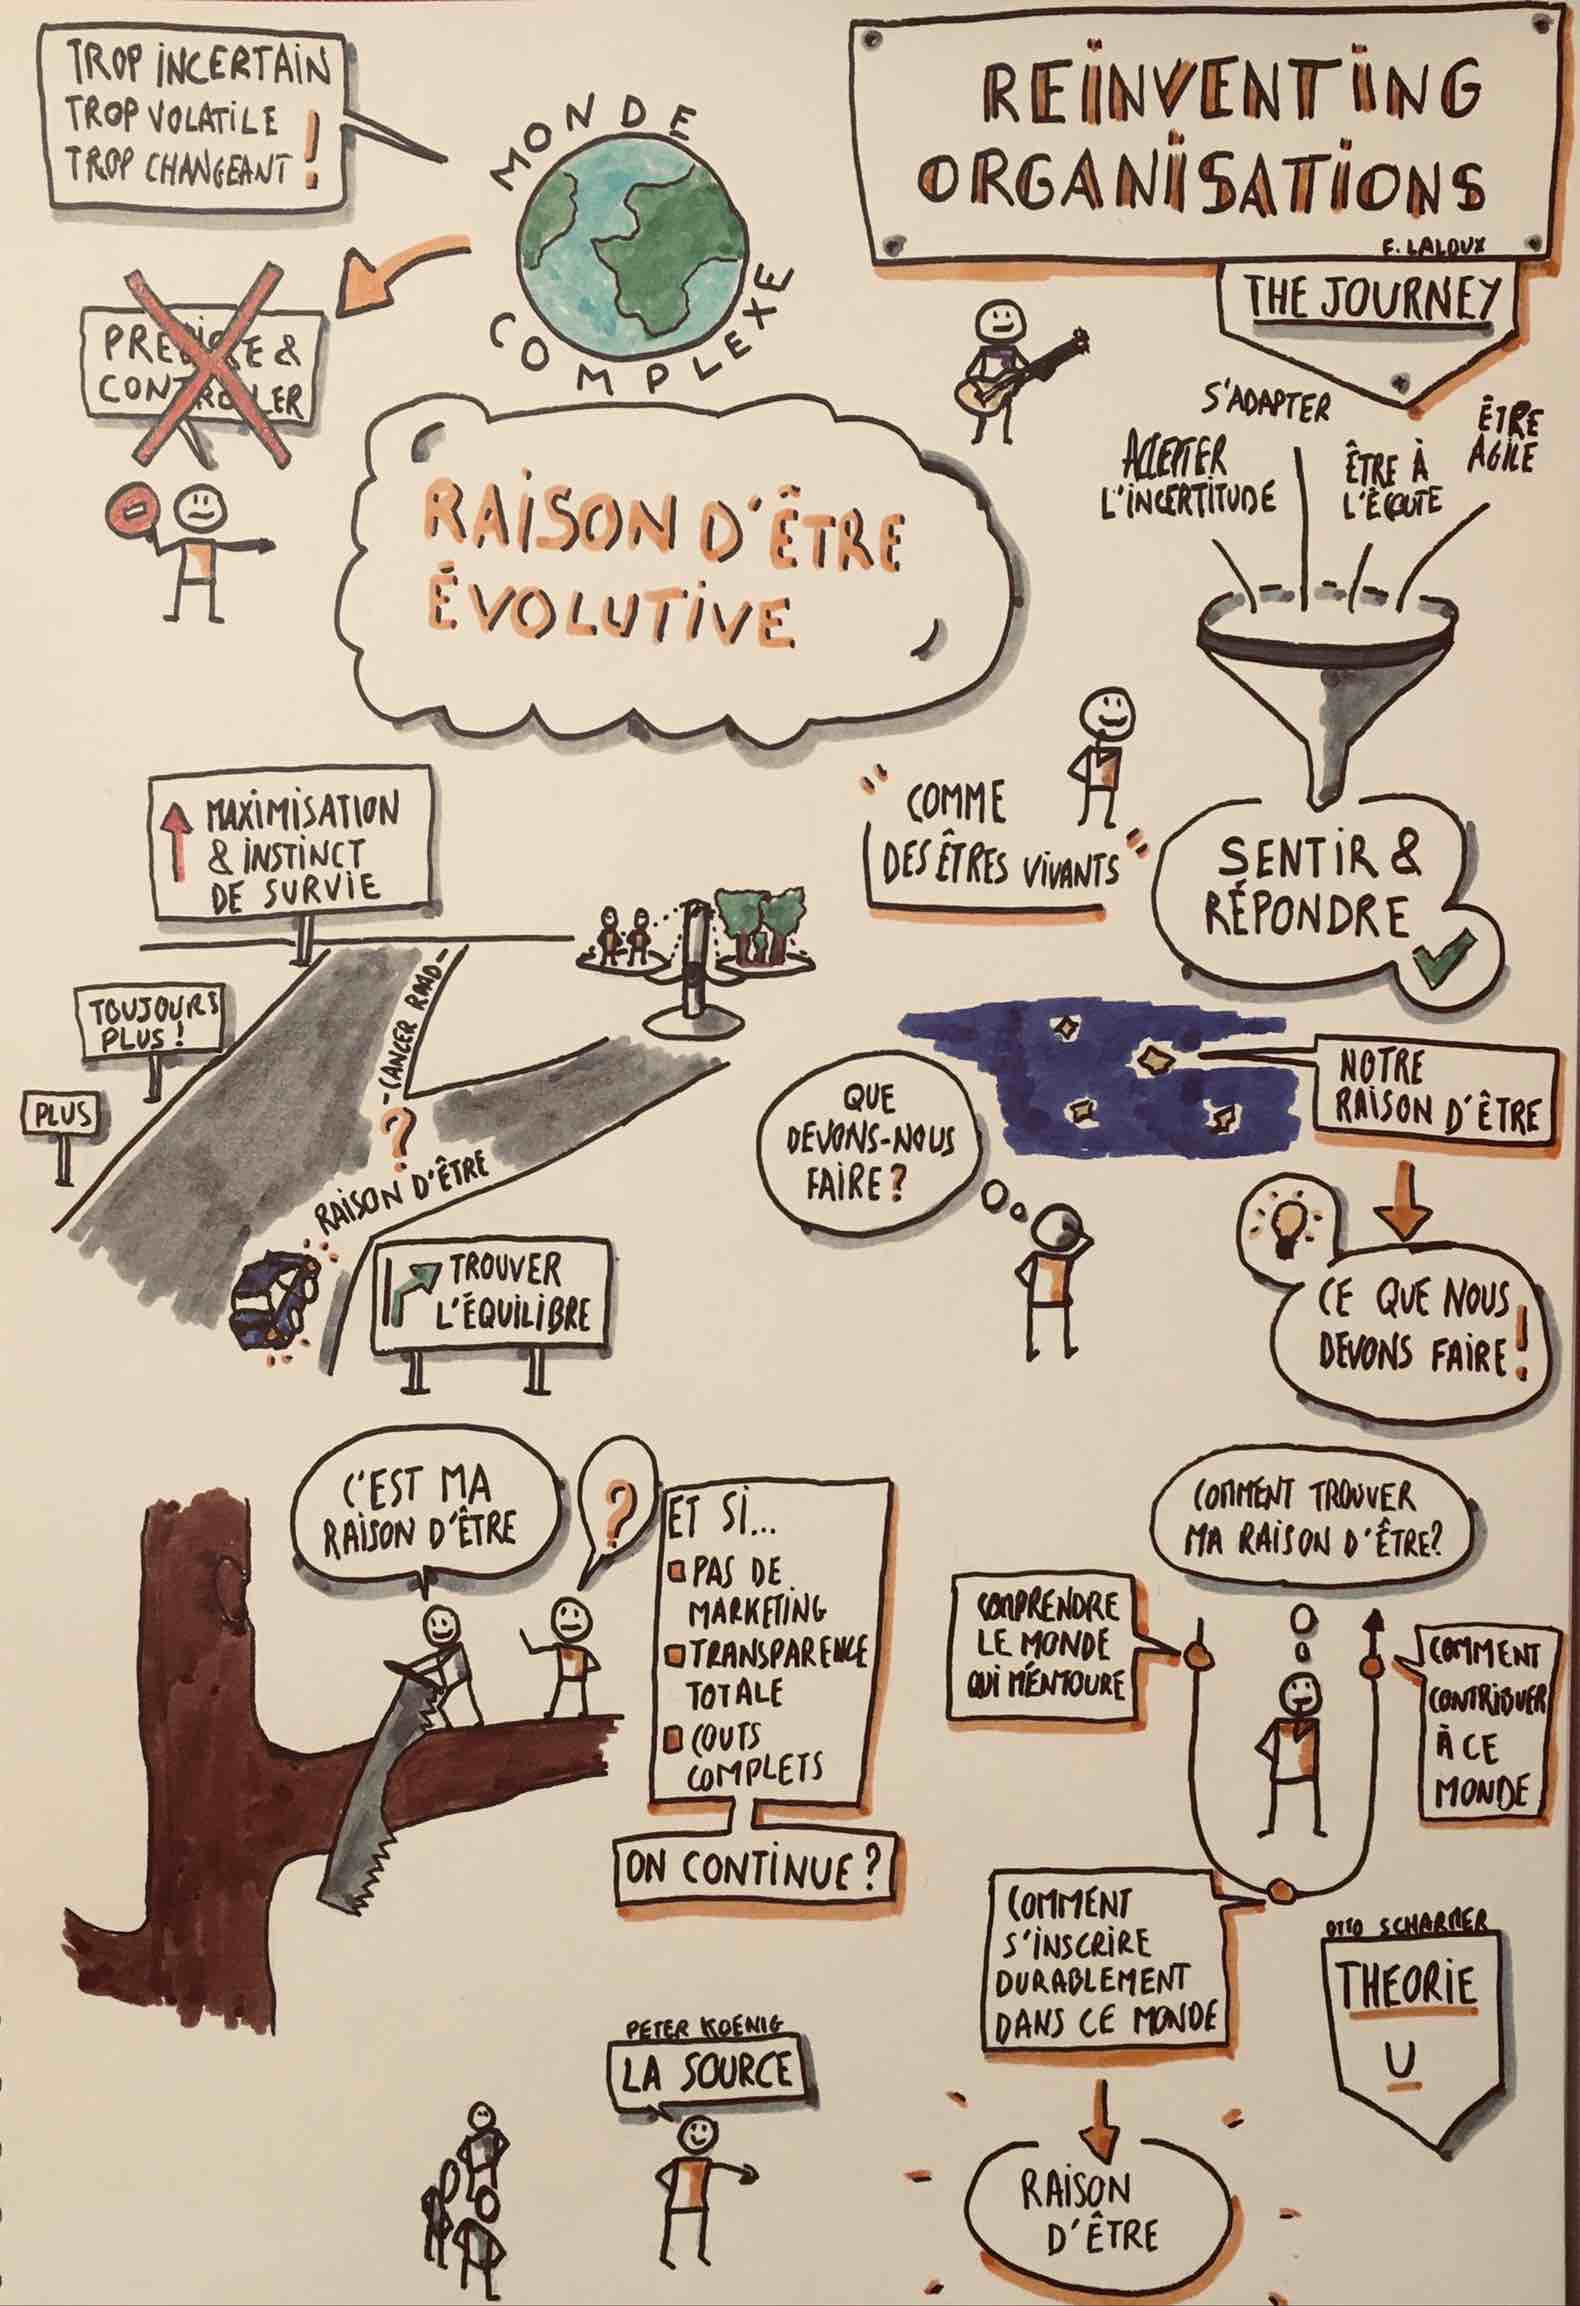 TROP INCERTAIN
TROP VOLATILE
TROP CHANGEANT !
MONDE
COMPLEXE
REINVENTING
ORGANISATIONS
F. LALOUX
THE JOURNEY
PREDIRE &
CONTROLER
RAISON D'ÊTRE
ÉVOLUTIVE
S'ADAPTER
ACCEPTER
L'INCERTITUDE
ÊTRE À
L'ÉCOUTE
ÊTRE
AGILE
"COMME
DES ÊTRES VIVANTS"
SENTIR &
RÉPONDRE
MAXIMISATION
& INSTINCT
DE SURVIE
TOUJOURS
PLUS !
PLUS
- CANCER ROAD -
?
RAISON D'ÊTRE
TROUVER
L'ÉQUILIBRE
QUE
DEVONS-NOUS
FAIRE ?
NOTRE
RAISON D'ÊTRE
CE QUE NOUS
DEVONS FAIRE !
C'EST MA
RAISON D'ÊTRE
?
ET SI...
PAS DE
MARKETING
TRANSPARENCE
TOTALE
COUTS
COMPLETS
ON CONTINUE ?
COMMENT TROUVER
MA RAISON D'ÊTRE?
COMPRENDRE
LE MONDE
QUI M'ENTOURE
COMMENT
CONTRIBUER
À CE
MONDE
COMMENT
S'INSCRIRE
DURABLEMENT
DANS CE MONDE
OTTO SCHARMER
THEORIE
U
PETER KOENIG
LA SOURCE
RAISON
D'ÊTRE